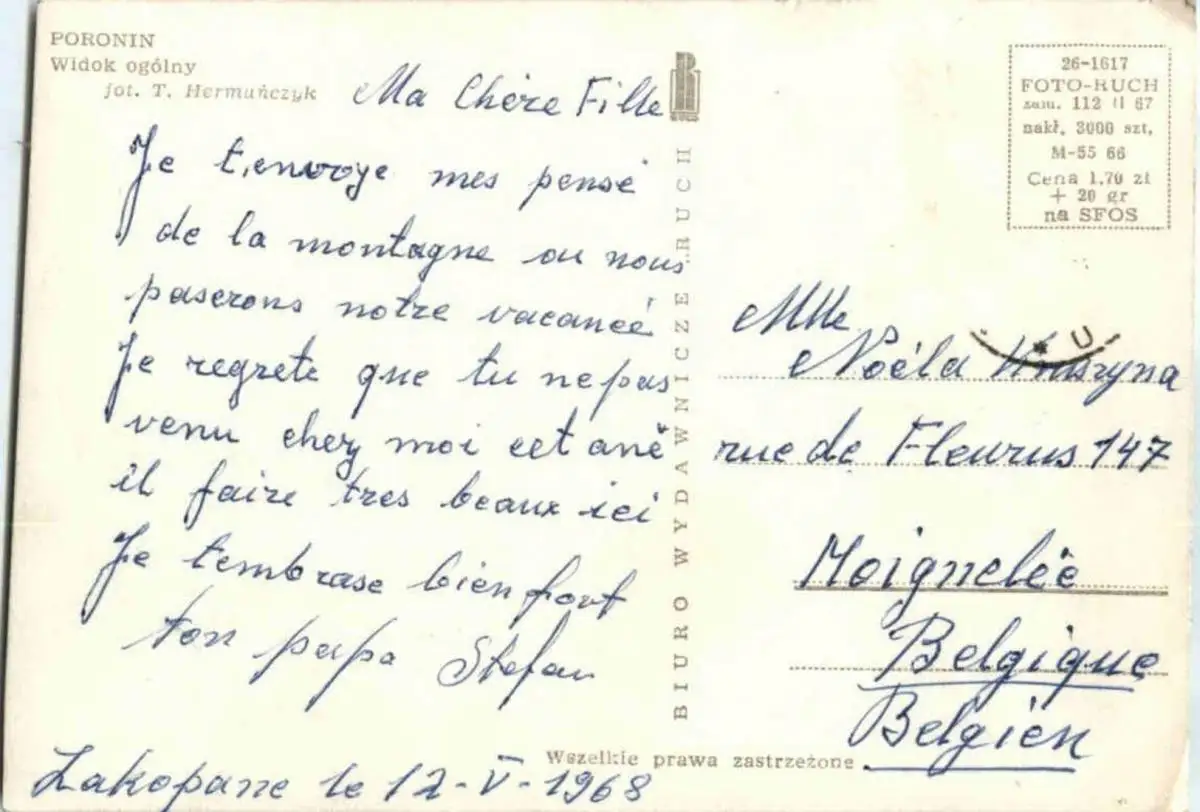 PORONIN
Widok ogólny
fot. T. Hermańczyk
Ma Chère Fille
Je t,envoye mes pensé
de la montagne ou nous
paserons notre vacanéé
Je regrete que tu ne pas
venu chez moi cet ané
il faire tres beaux ici
Je tembrase bien fort
ton papa Stefan
Zakopane le 12-V-1968
RUCH
BIURO WYDAWNICZE RUCH
26-1617
FOTO-RUCH
zam. 112 II 67
nakł. 3000 szt.
M-55 66
Cena 1,70 zł
+ 20 gr
na SFOS
U
Mlle
Noéla
rue de Fleurus 147
Moignelée
Belgique
Belgien
Wszelkie prawa zastrzeżone